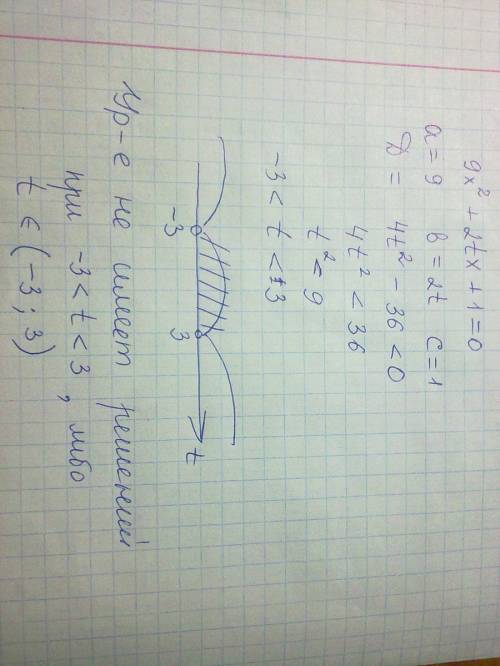 9x² + 2tx + 1 = 0
a = 9 в = 2t c = 1
D = 4t² - 36 < 0
4t² < 36
t² < 9
-3 < t < 3
-3 3 t
Ур-е не имеет решений
при -3 < t < 3, либо
t ∈ (-3; 3)